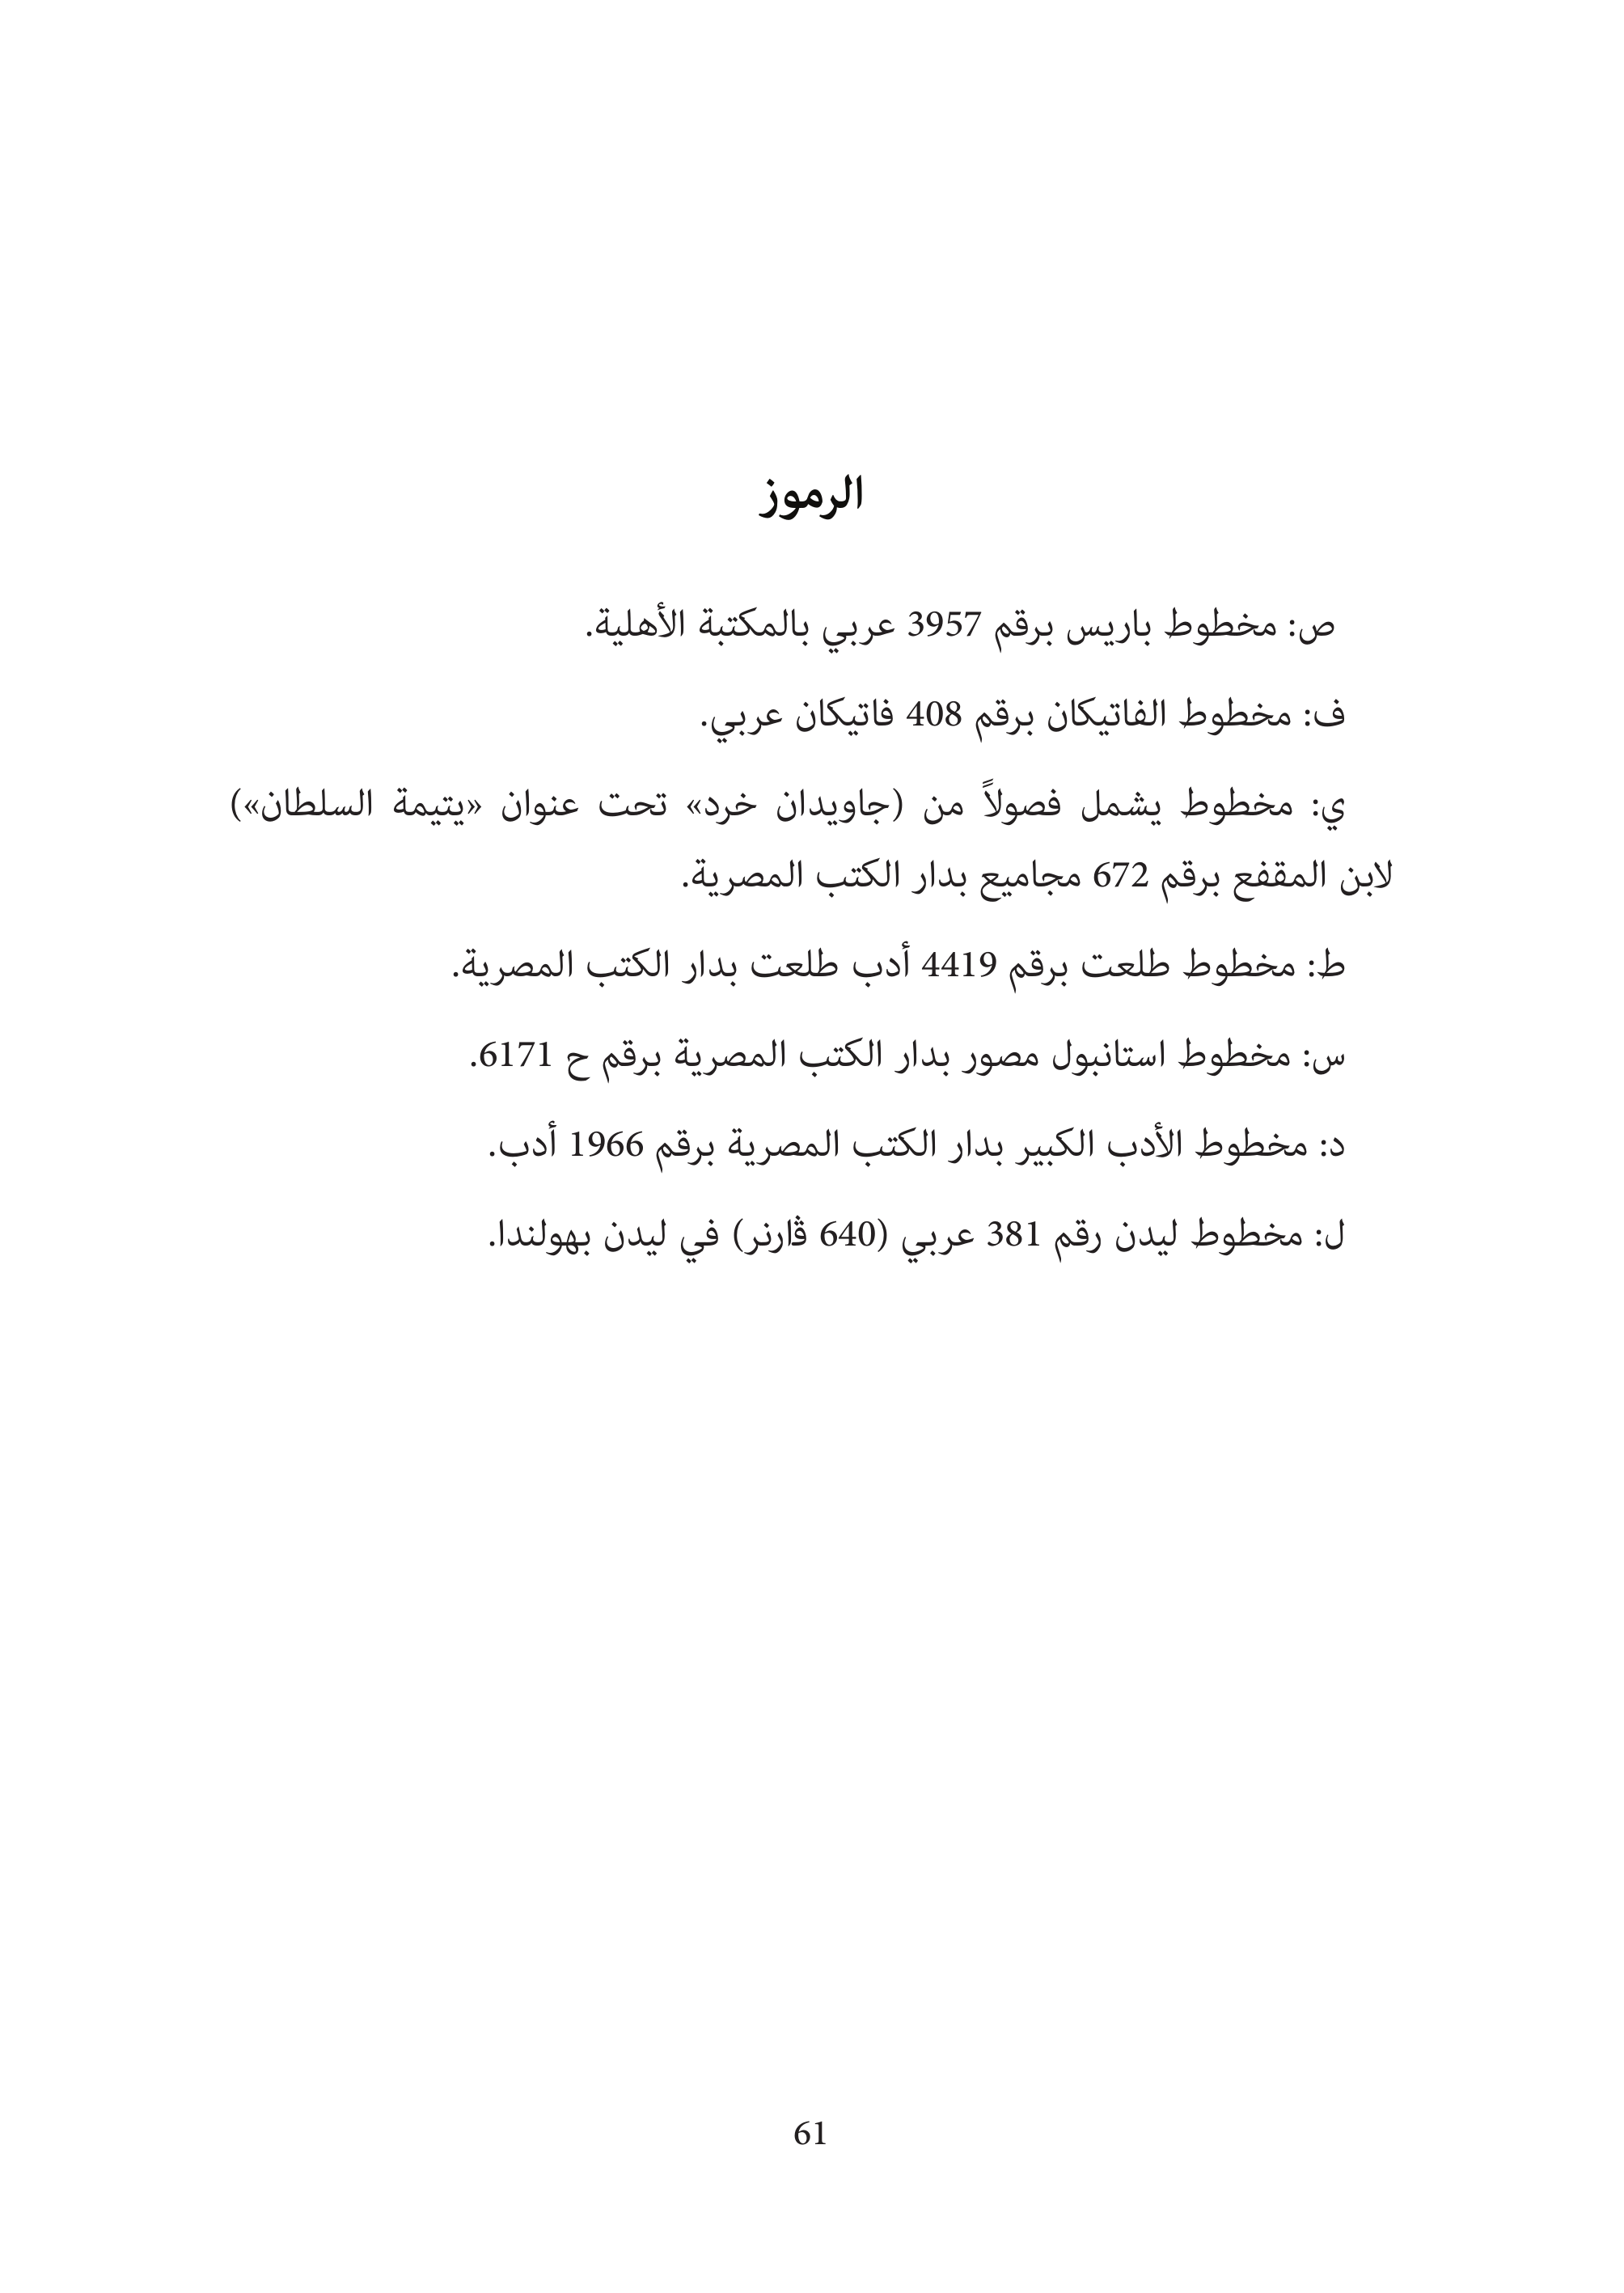 الرموز
ص: مخطوط باريس برقم 3957 عربي بالمكتبة الأهلية.
ف: مخطوط الفاتيكان برقم 408 فاتيكان عربي.
ي: مخطوط يشمل فصولاً من (جاويدان خرد» تحت عنوان «يتيمة السلطان»)
لابن المقفع برقم 672 مجاميع بدار الكتب المصرية.
ط: مخطوط طلعت برقم 4419 أدب طلعت بدار الكتب المصرية.
س: مخطوط استانبول مصور بدار الكتب المصرية برقم ح 6171.
د: مخطوط الأدب الكبير بدار الكتب المصرية برقم 1966 أدب.
ل: مخطوط ليدن رقم 381 عربي (640 ڤارنر) في ليدن بهولندا.
61